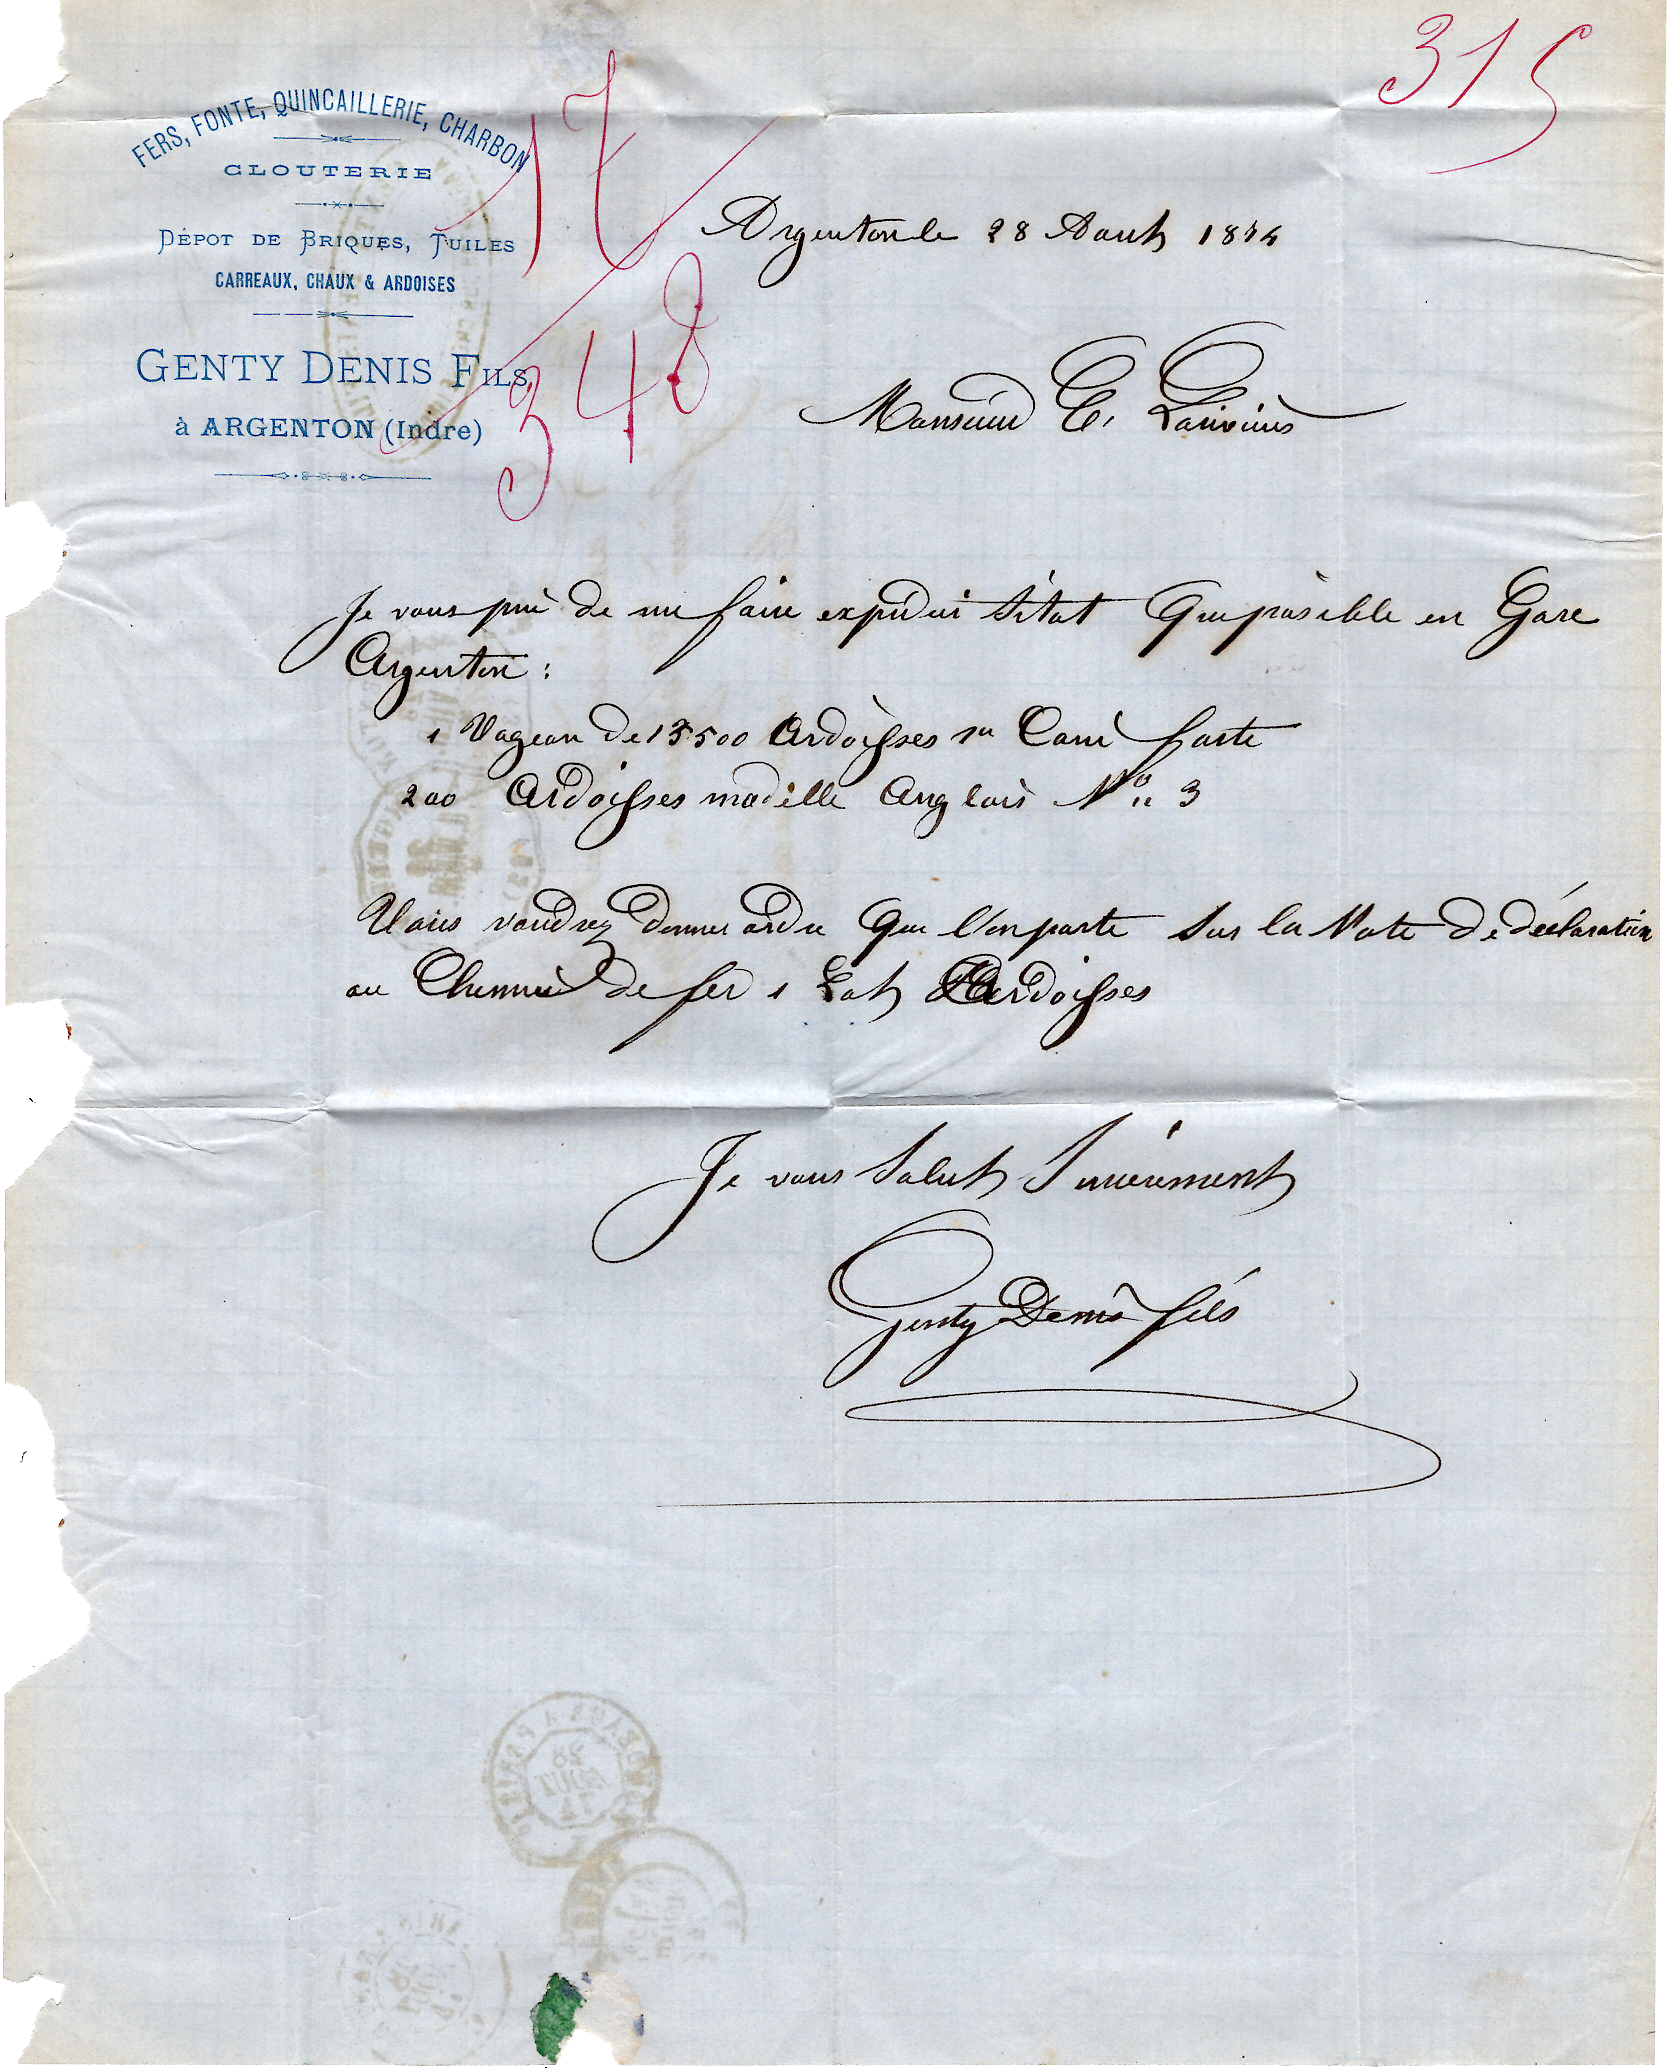 FERS, FONTE, QUINCAILLERIE, CHARBON
CLOUTERIE
DÉPOT DE BRIQUES, TUILES
CARREAUX, CHAUX & ARDOISES
GENTY DENIS FILS
à ARGENTON (Indre)
17
348
315
Argenton le 28 Aout 1874
Monsieur
Je vous prie de me faire expedier sitot que possible en Gare
Argenton :
1 Vageon de 13500 Ardoisses 1re Carré forte
200 Ardoisses modelle Anglais No 3
Vous voudrez donner ordre que l'on porte sur la Note de déclaration
au Chemin de fer 1 Lot Ardoisses
Je vous Salut Sincèrement
Genty Denis fils
28
AOUT
74